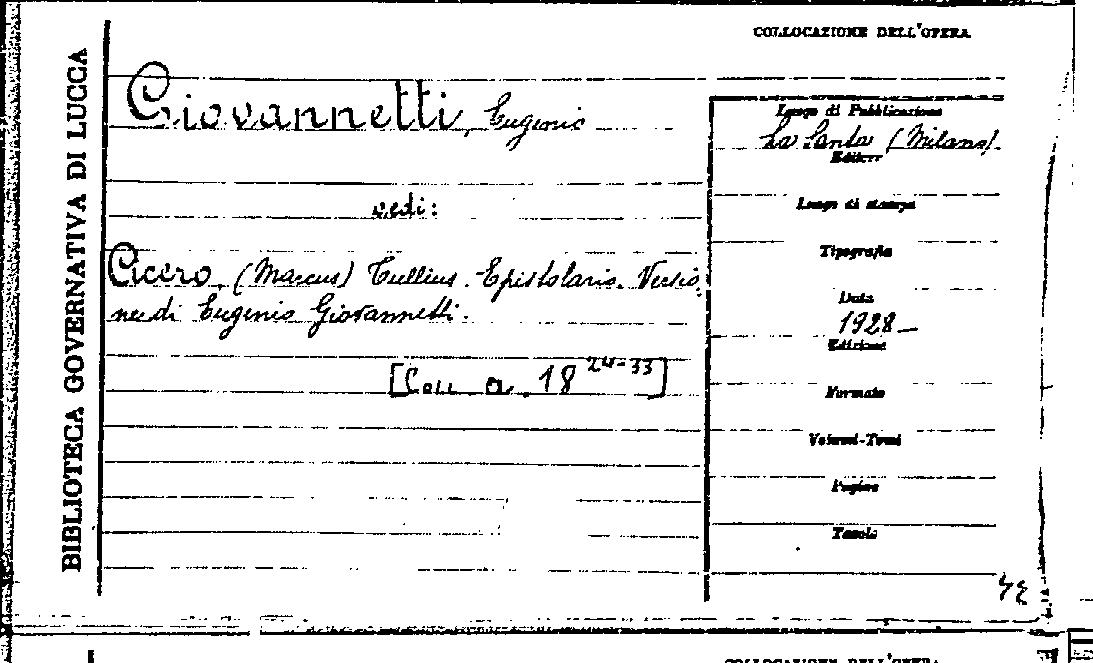 COLLOCAZIONE DELL'OPERA
BIBLIOTECA GOVERNATIVA DI LUCCA
Giovannetti, Eugenio
vedi:
Cicero (Marcus) Tullius. Epistolario. Versio-
ne di Eugenio Giovannetti.
[Coll a. 18 24-33]
Luogo di Pubblicazione
La Santa (Milano).
Editore
Luogo di stampa
Tipografia
Data
1928 -
Edizione
Formato
Volumi-Tomi
Pagine
Tavole
COLLOCAZIONE DELL'OPERA